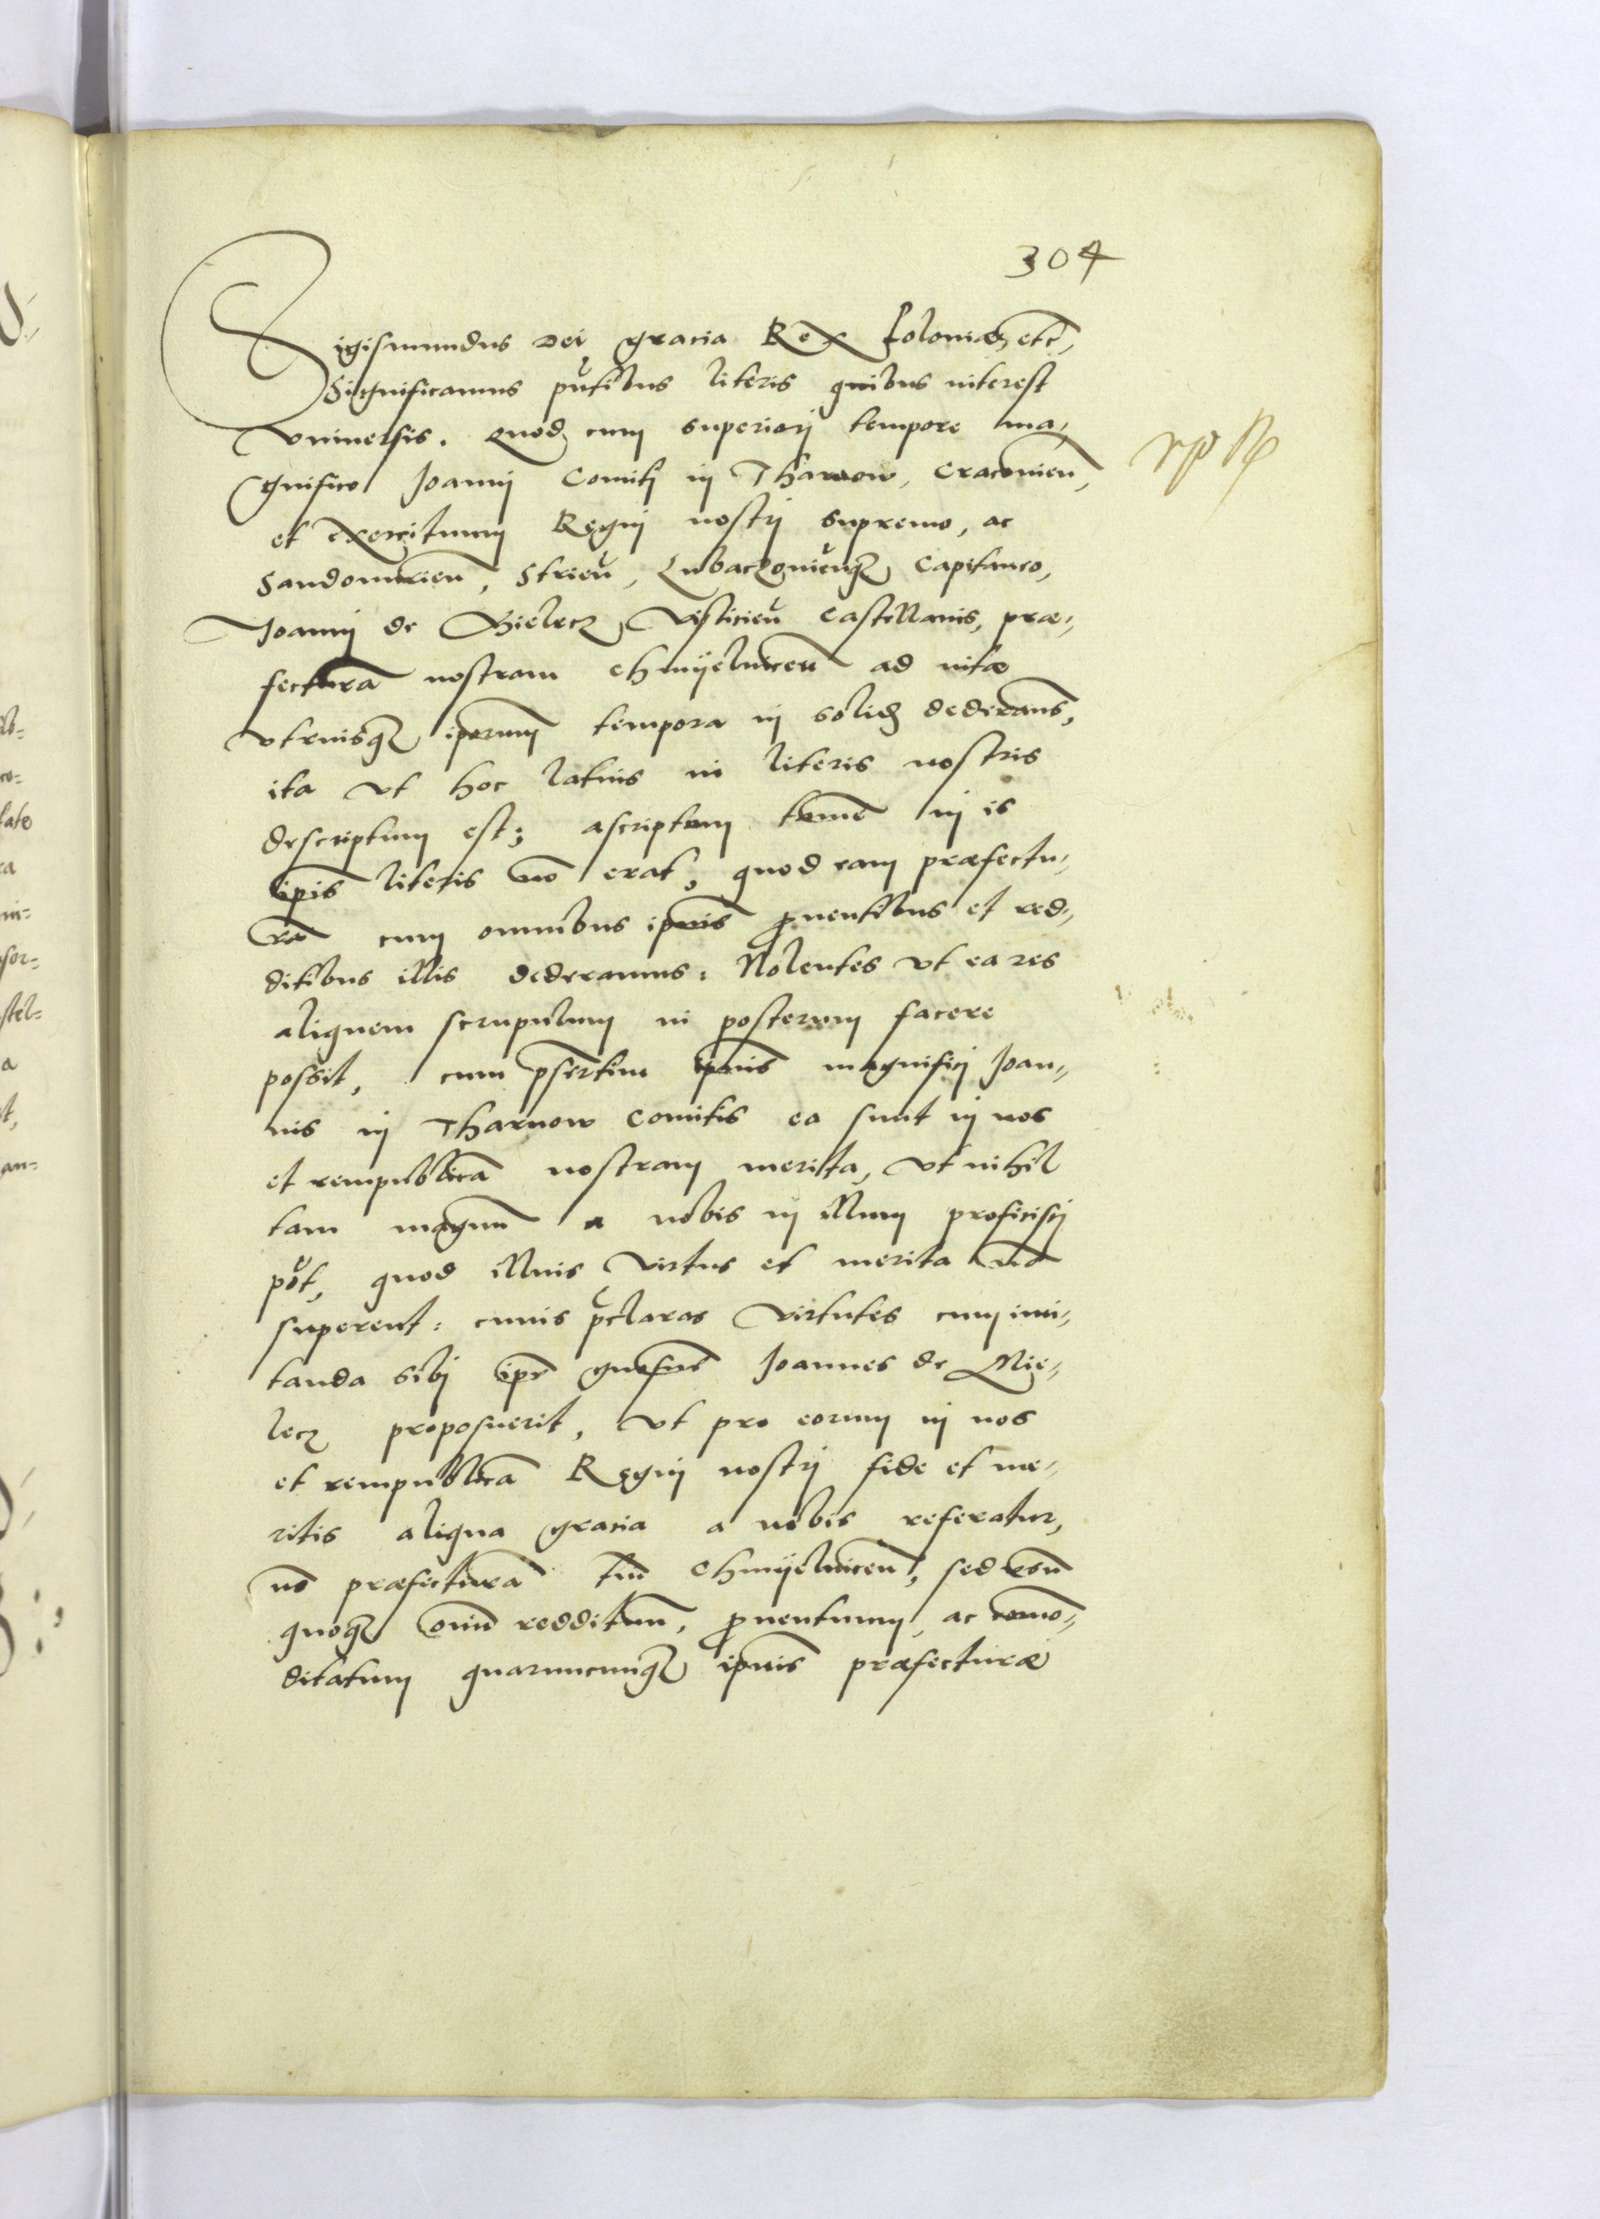 304
Sigismundus Dei gracia Rex Poloniæ etc̃,
Significamus pñtibus literis quibus interest
vniuersis. Quod cum superiorj tempore ma,
gnifico Joannj Comitj in Tharnow, Cracouień,
et Exercituum Regni nostrj supremo, ac
Sandomirień, Strień, Lubaczouieńqꝫ Capitaneo,
Joannj de Mielecz Vislicień Castellanis, præ,,
fecturã nostram Chmijelniceñ ad vitæ
vtriusqꝫ ip̃orum tempora in solidꝫ dederams̃,
ita vt hoc latius in literis nostris
descriptum est; ascriptum tamẽ in is
ip̃is literis nõ erat, quod eam præfectu,,
rã cum omnibus ip̃ius ꝓuentibus et red,,
ditibus illis dederamus: Nolentes vt ea res
aliquem scrupulum in posterum facere
possit, cum p̃sertim ip̃ius magnificj Joan,,
nis in Tharnow Comitis ea sunt in nos
et rempublicã nostram merita, vt nihil
tam magnũ a nobis in illum proficiscj
põt, quod illius virtus et merita nõ
superent: cuius p̃claras virtutes cum imi,,
tanda sibj ip̃e gñosus Joannes de Mie,,
lecz proposuerit, vt pro eorum in nos
et rempublicã Regni nostrj fide et me,,
ritis aliqua gracia a nobis referatur,
nõ præfecturã tm̃ Chmijelniceñ, sed esũ
quoqꝫ om̃iũ reddituũ, ꝓuentuum, ac com̃o,,
ditatum quarumcunqꝫ ip̃ius præfecturæ